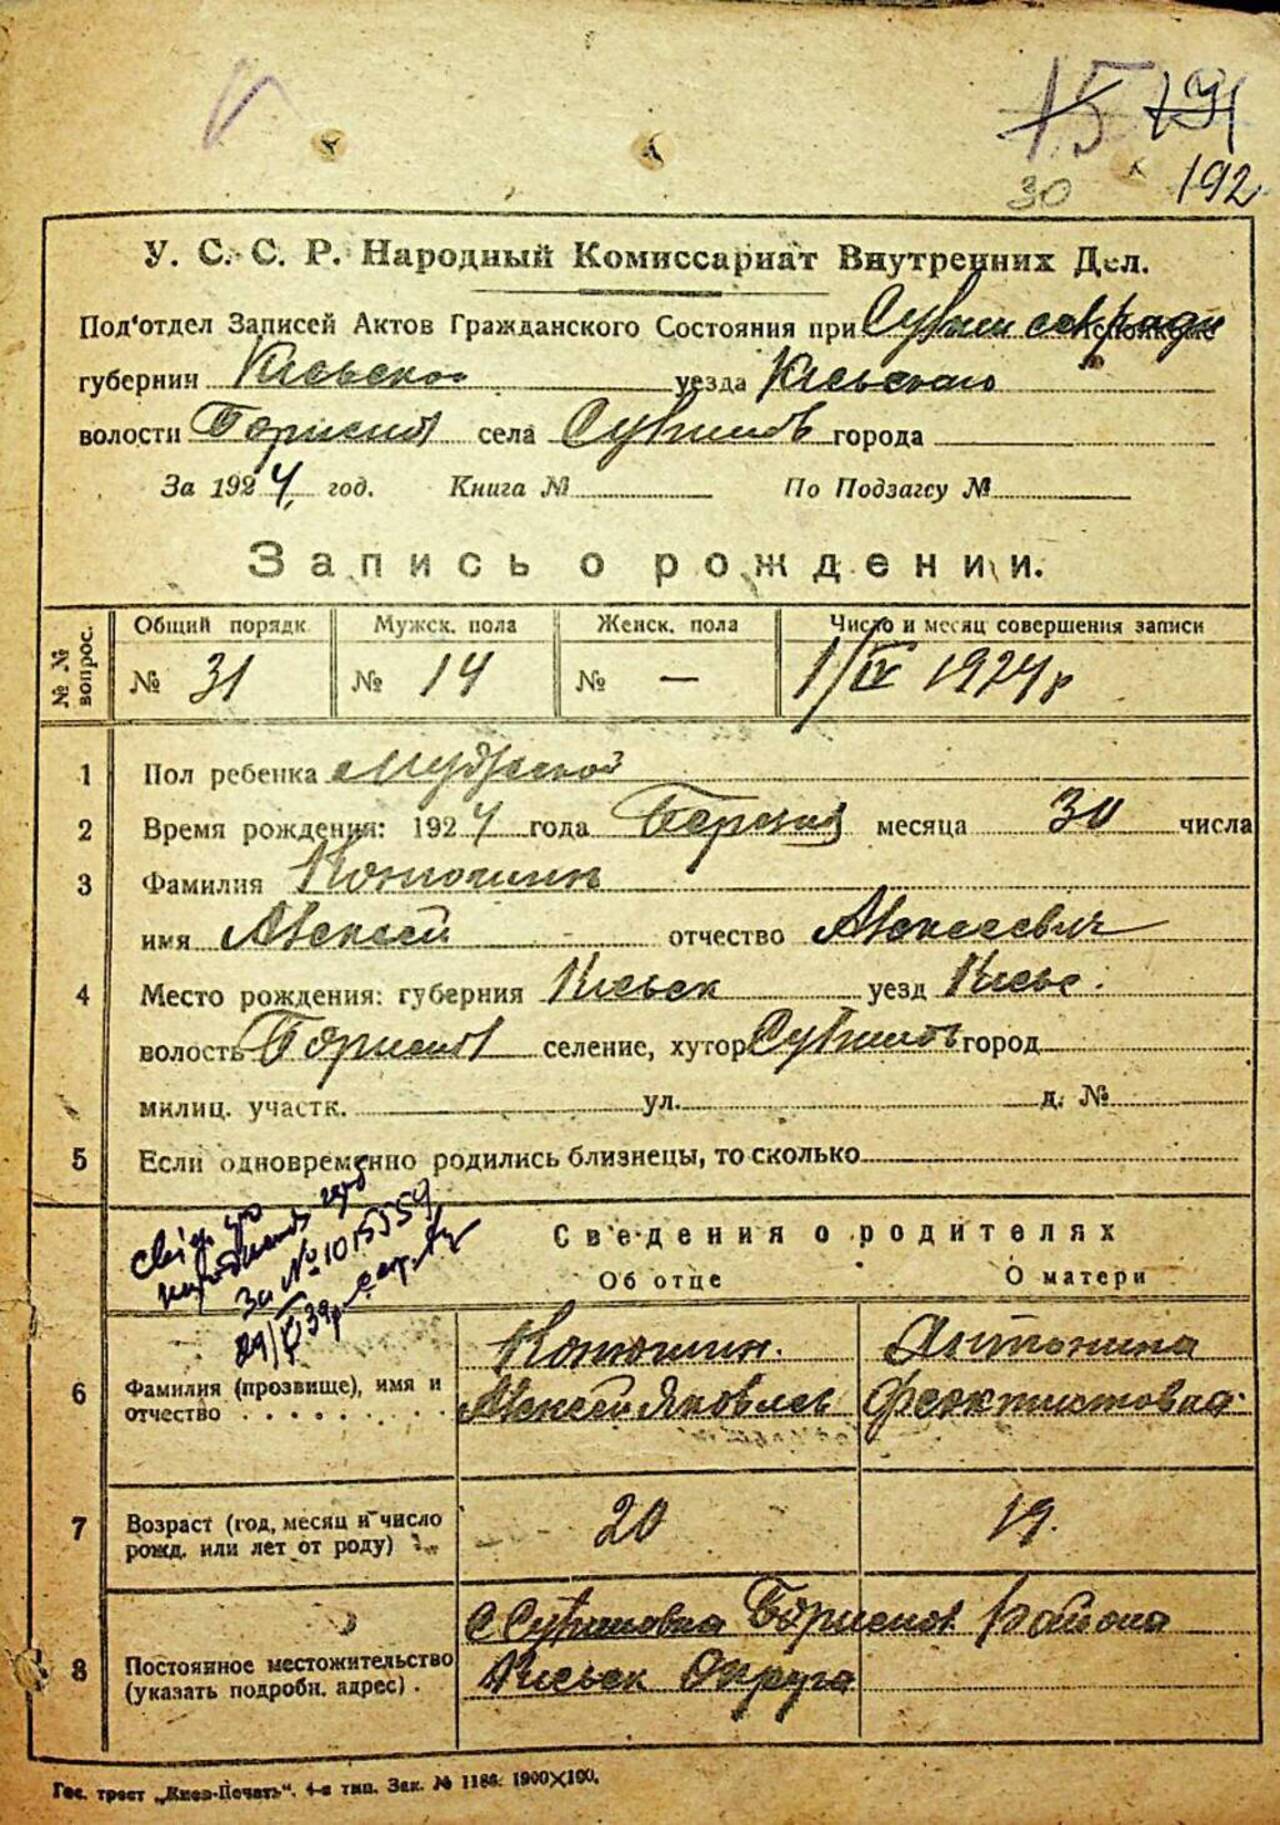 15 191
30 192
У. С. С. Р. Народный Комиссариат Внутренних Дел.
Под'отдел Записей Актов Гражданского Состояния при
губернии Киевской уезда Киевского
волости Бориспол села города
За 1924 год. Книга № По Подзагсу №
Запись о рождении.
№ № вопрос. Общий порядк. Мужск. пола Женск. пола Число и месяц совершения записи
№ 31 № 14 № — 1/IV 1924 р
1 Пол ребенка Мужской
2 Время рождения: 1924 года месяца 30 числа
3 Фамилия Конюшин
имя Алексей отчество Алексеевич
4 Место рождения: губерния Киевск уезд Киевс.
волость Бориспол селение, хутор город
милиц. участк. ул. д. №
5 Если одновременно родились близнецы, то сколько
за № 1015559
Сведения о родителях
Об отце О матери
6 Фамилия (прозвище), имя и отчество Конюшин. Алексей Яковлев Антонина Феоктистовна
7 Возраст (год, месяц и число рожд. или лет от роду) 20 19.
8 Постоянное местожительство (указать подробн. адрес). Района
Киевск Округа
Гос. трест „Киев-Печать“. 4-я тип. Зак. № 1186. 1900×100.